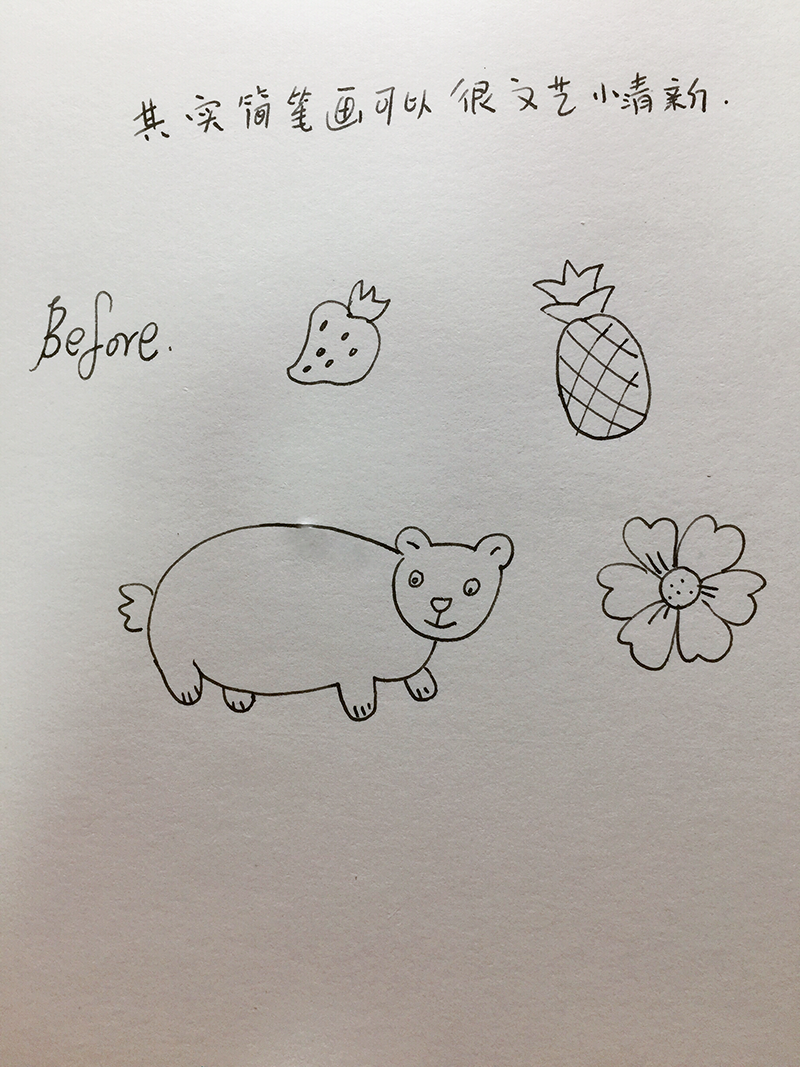 其实简笔画可以很文艺小清新.
Before.